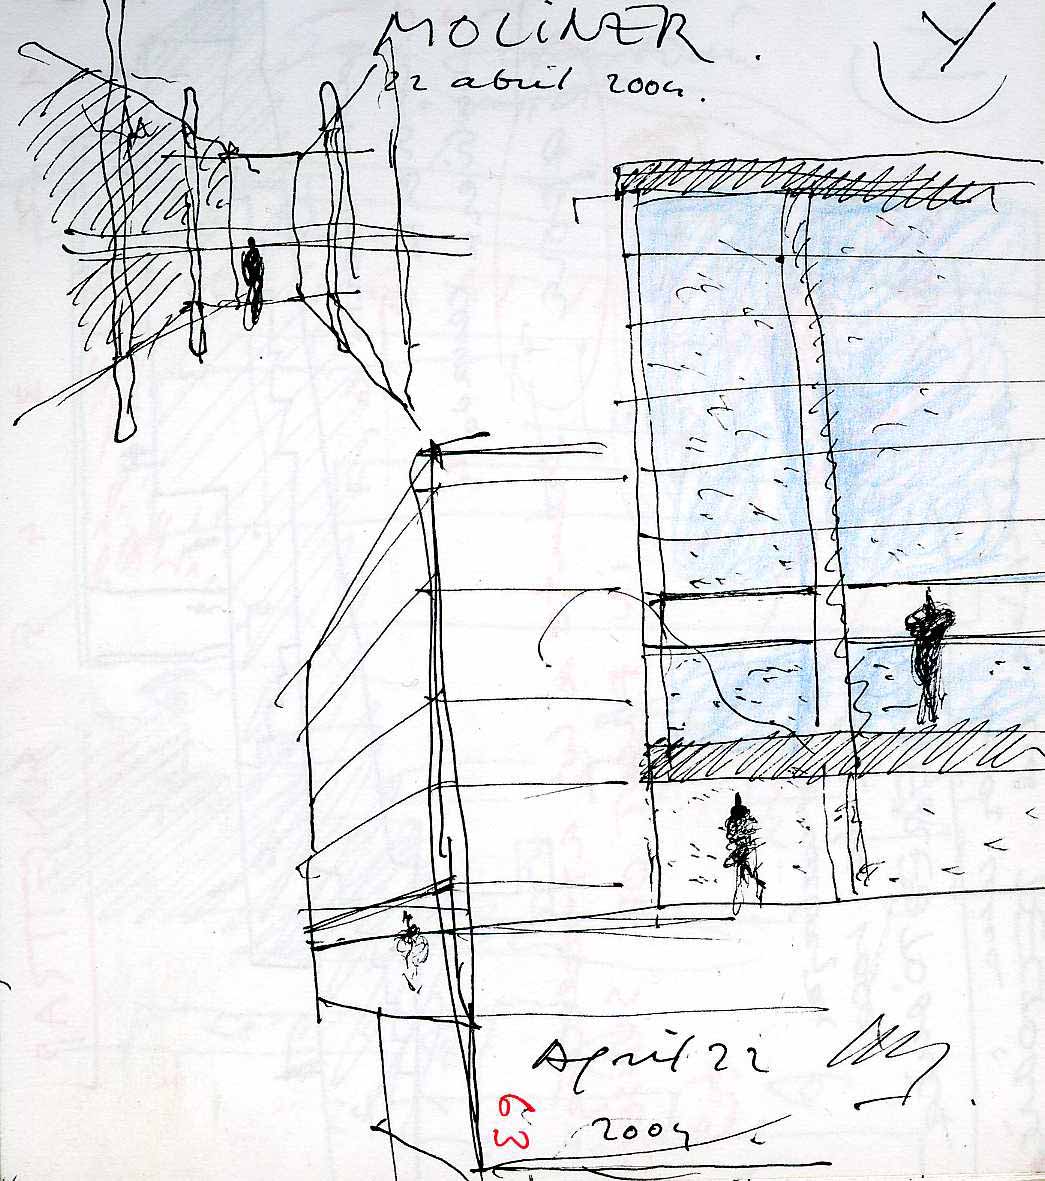 MOLINER
22 abril 2004.
April 22
2004
63